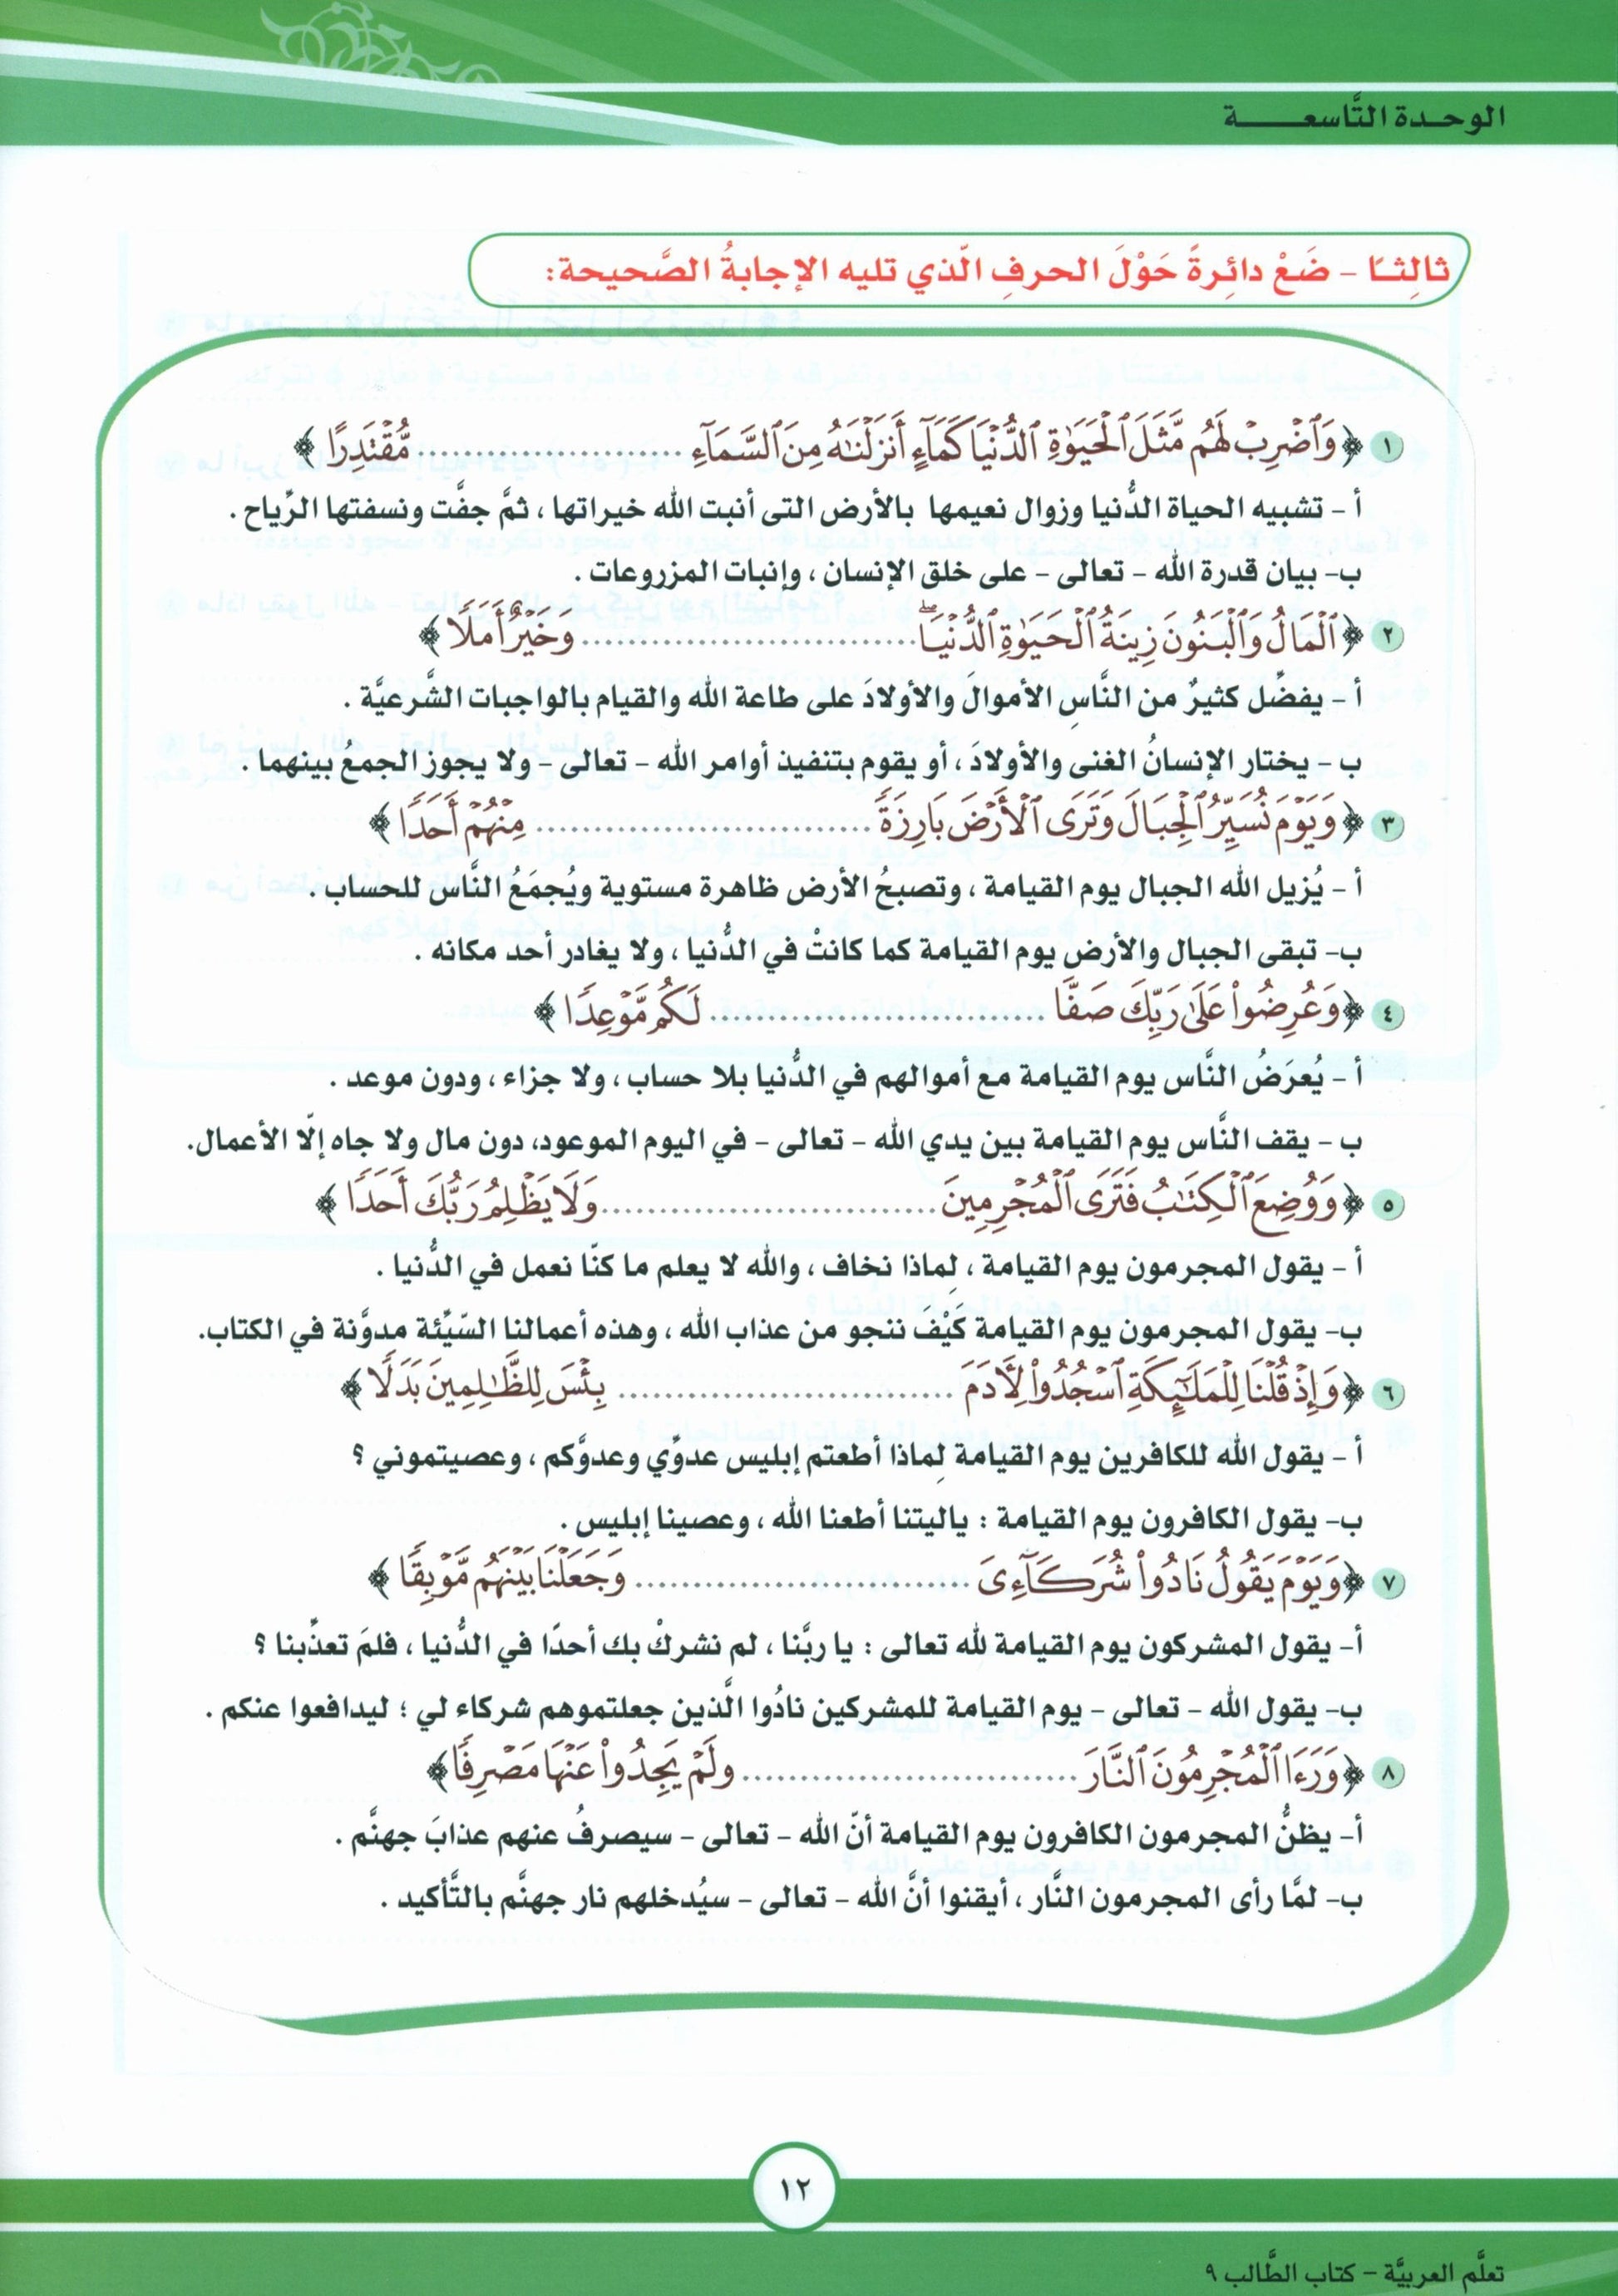 الوحـدة التَّاسعـــــة
ثالِثـًا – ضَعْ دائِرةً حَوْلَ الحرفِ الّذي تليه الإجابةُ الصَّحيحة:
١ ﴿ وَٱضْرِبْ لَهُم مَّثَلَ ٱلْحَيَوٰةِ ٱلدُّنْيَا كَمَآءٍ أَنزَلْنَٰهُ مِنَ ٱلسَّمَآءِ ........................... مُّقْتَدِرًا ﴾
أ – تشبيه الحياة الدُّنيا وزوال نعيمها بالأرض التى أنبت الله خيراتها ، ثمَّ جفَّت ونسفتها الرِّياح .
ب– بيان قدرة الله – تعالى – على خلق الإنسان ، وإنبات المزروعات .
٢ ﴿ ٱلْمَالُ وَٱلْبَنُونَ زِينَةُ ٱلْحَيَوٰةِ ٱلدُّنْيَاۖ .................................. وَخَيْرٌ أَمَلًا ﴾
أ – يفضِّل كثيرٌ من النَّاسِ الأموالَ والأولادَ على طاعة الله والقيام بالواجبات الشَّرعيَّة .
ب – يختار الإنسانُ الغنى والأولادَ ، أو يقوم بتنفيذ أوامر الله – تعالى – ولا يجوز الجمعُ بينهما .
٣ ﴿ وَيَوْمَ نُسَيِّرُ ٱلْجِبَالَ وَتَرَى ٱلْأَرْضَ بَارِزَةً .................................. مِنْهُمْ أَحَدًا ﴾
أ – يُزيل الله الجبال يوم القيامة ، وتصبحُ الأرض ظاهرة مستوية ويُجمَعُ النَّاس للحساب .
ب– تبقى الجبال والأرض يوم القيامة كما كانتْ في الدُّنيا ، ولا يغادر أحد مكانه .
٤ ﴿ وَعُرِضُوا۟ عَلَىٰ رَبِّكَ صَفًّا .................................. لَكُم مَّوْعِدًا ﴾
أ – يُعرَضُ النَّاس يوم القيامة مع أموالهم في الدُّنيا بلا حساب ، ولا جزاء ، ودون موعد .
ب – يقف النَّاس يوم القيامة بين يدي الله – تعالى – في اليوم الموعود، دون مال ولا جاه إلّا الأعمال.
٥ ﴿ وَوُضِعَ ٱلْكِتَٰبُ فَتَرَى ٱلْمُجْرِمِينَ .................................. وَلَا يَظْلِمُ رَبُّكَ أَحَدًا ﴾
أ – يقول المجرمون يوم القيامة ، لماذا نخاف ، والله لا يعلم ما كنّا نعمل في الدُّنيا .
ب– يقول المجرمون يوم القيامة كَيْفَ ننجو من عذاب الله ، وهذه أعمالنا السّيِّئة مدوَّنة في الكتاب.
٦ ﴿ وَإِذْ قُلْنَا لِلْمَلَٰٓئِكَةِ ٱسْجُدُوا۟ لِءَادَمَ .................................. بِئْسَ لِلظَّٰلِمِينَ بَدَلًا ﴾
أ – يقول الله للكافرين يوم القيامة لماذا أطعتم إبليس عدوِّي وعدوَّكم ، وعصيتموني ؟
ب– يقول الكافرون يوم القيامة : ياليتنا أطعنا الله ، وعصينا إبليس .
٧ ﴿ وَيَوْمَ يَقُولُ نَادُوا۟ شُرَكَآءِىَ .................................. وَجَعَلْنَا بَيْنَهُم مَّوْبِقًا ﴾
أ– يقول المشركون يوم القيامة لله تعالى : يا ربَّنا ، لم نشركْ بك أحدًا في الدُّنيا ، فلمَ تعذِّبنا ؟
ب– يقول الله – تعالى – يوم القيامة للمشركين نادُوا الَّذين جعلتموهم شركاء لي ؛ ليدافعوا عنكم .
٨ ﴿ وَرَءَا ٱلْمُجْرِمُونَ ٱلنَّارَ .................................. ولَمْ يَجِدُوا۟ عَنْهَا مَصْرِفًا ﴾
أ– يظنُّ المجرمون الكافرون يوم القيامة أنّ الله – تعالى – سيصرفُ عنهم عذابَ جهنَّم .
ب– لمَّا رأى المجرمون النَّار ، أيقنوا أنَّ الله – تعالى – سيُدخلهم نار جهنَّم بالتَّأكيد .
١٢
تعلَّم العربيَّة – كتاب الطَّالب ٩